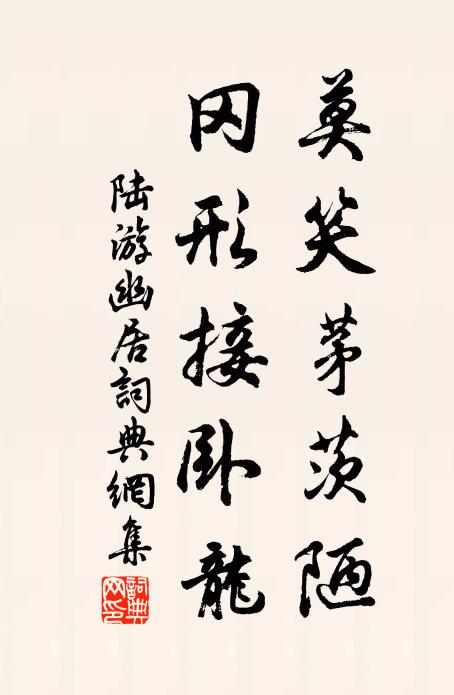 莫笑茅茨陋
冈形接卧龍
陆游幽居詞典網集
詞典
网印